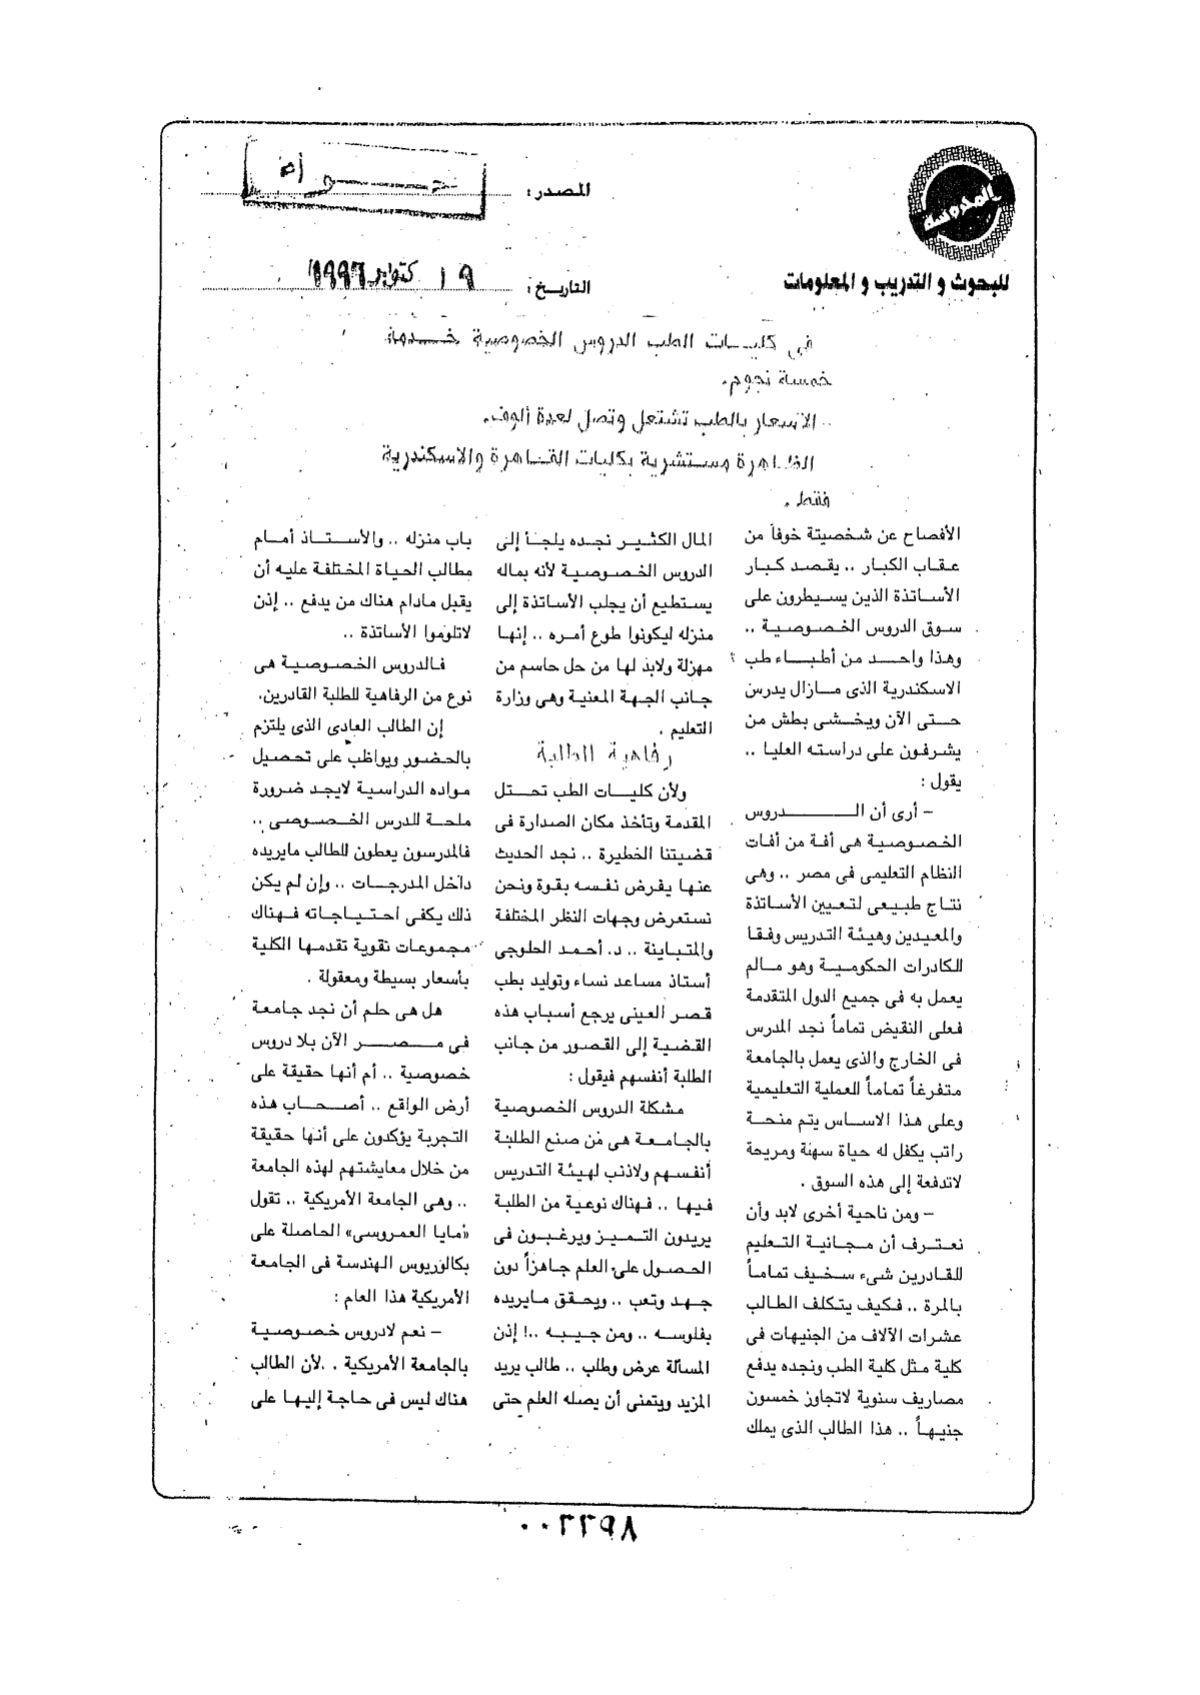 المدوسة
للبحوث و التدريب و المعلومات
المصدر :
حـــواء
التاريخ :
١٩ أكتوبر ١٩٩٦
فى كليــات الطب الدروس الخصوصية خــدمة
خمسة نجوم.
.. الاسعار بالطب تشتعل وتصل لعدة ألوف.
الظاهرة مستشرية بكليات القاهرة والاسكندرية
فقط .
الأفصاح عن شخصيتة خوفاً من
عقاب الكبار .. يقصد كبار
الأساتذة الذين يسيطرون على
سوق الدروس الخصوصية ..
وهذا واحد من أطباء طب
الاسكندرية الذى مازال يدرس
حتى الآن ويخشى بطش من
يشرفون على دراسته العليا ..
يقول :
– أرى أن الــــدروس
الخصوصية هى أفة من أفات
النظام التعليمى فى مصر .. وهى
نتاج طبيعى لتعيين الأساتذة
والمعيدين وهيئة التدريس وفقا
للكادرات الحكومية وهو مالم
يعمل به فى جميع الدول المتقدمة
فعلى النقيض تماماً نجد المدرس
فى الخارج والذى يعمل بالجامعة
متفرغاً تماماً للعملية التعليمية
وعلى هذا الاساس يتم منحة
راتب يكفل له حياة سهلة ومريحة
لاتدفعة إلى هذه السوق .
– ومن ناحية أخرى لابد وأن
نعترف أن مجانية التعليم
للقادرين شىء سخيف تماماً
بالمرة .. فكيف يتكلف الطالب
عشرات الآلاف من الجنيهات فى
كلية مثل كلية الطب ونجده يدفع
مصاريف سنوية لاتجاوز خمسون
جنيهاً .. هذا الطالب الذى يملك
المال الكثير نجده يلجأ إلى
الدروس الخصوصية لأنه بماله
يستطيع أن يجلب الأساتذة إلى
منزله ليكونوا طوع أمره .. إنها
مهزلة ولابد لها من حل حاسم من
جانب الجهة المعنية وهى وزارة
التعليم .
رفاهية الطلبة
ولأن كليات الطب تحتل
المقدمة وتأخذ مكان الصدارة فى
قضيتنا الخطيرة .. نجد الحديث
عنها يفرض نفسه بقوة ونحن
نستعرض وجهات النظر المختلفة
والمتباينة .. د. أحمد الطوجى
أستاذ مساعد نساء وتوليد بطب
قصر العينى يرجع أسباب هذه
القضية إلى القصور من جانب
الطلبة أنفسهم فيقول :
مشكلة الدروس الخصوصية
بالجامعة هى من صنع الطلبة
أنفسهم ولاذنب لهيئة التدريس
فيها .. فهناك نوعية من الطلبة
يريدون التميز ويرغبون فى
الحصول على العلم جاهزاً دون
جهد وتعب .. ويحقق مايريده
بفلوسه .. ومن جيبه ..! إذن
المسألة عرض وطلب .. طالب يريد
المزيد ويتمنى أن يصله العلم حتى
باب منزله .. والأستاذ أمام
مطالب الحياة المختلفة عليه أن
يقبل مادام هناك من يدفع .. إذن
لاتلوموا الأساتذة ..
فالدروس الخصوصية هى
نوع من الرفاهية للطلبة القادرين.
إن الطالب العادى الذى يلتزم
بالحضور ويواظب على تحصيل
مواده الدراسية لايجد ضرورة
ملحة للدرس الخصوصى ..
فالمدرسون يعطون للطالب مايريده
داخل المدرجات .. وإن لم يكن
ذلك يكفى احتياجاته فهناك
مجموعات تقوية تقدمها الكلية
بأسعار بسيطة ومعقولة .
هل هى حلم أن نجد جامعة
فى مــصــر الآن بلا دروس
خصوصية .. أم أنها حقيقة على
أرض الواقع .. أصحاب هذه
التجربة يؤكدون على أنها حقيقة
من خلال معايشتهم لهذه الجامعة
.. وهى الجامعة الأمريكية .. تقول
«مايا العمروسى» الحاصلة على
بكالوريوس الهندسة فى الجامعة
الأمريكية هذا العام :
– نعم لادروس خصوصية
بالجامعة الأمريكية . .لأن الطالب
هناك ليس فى حاجة إليها على
٠٠٢٢٩٨